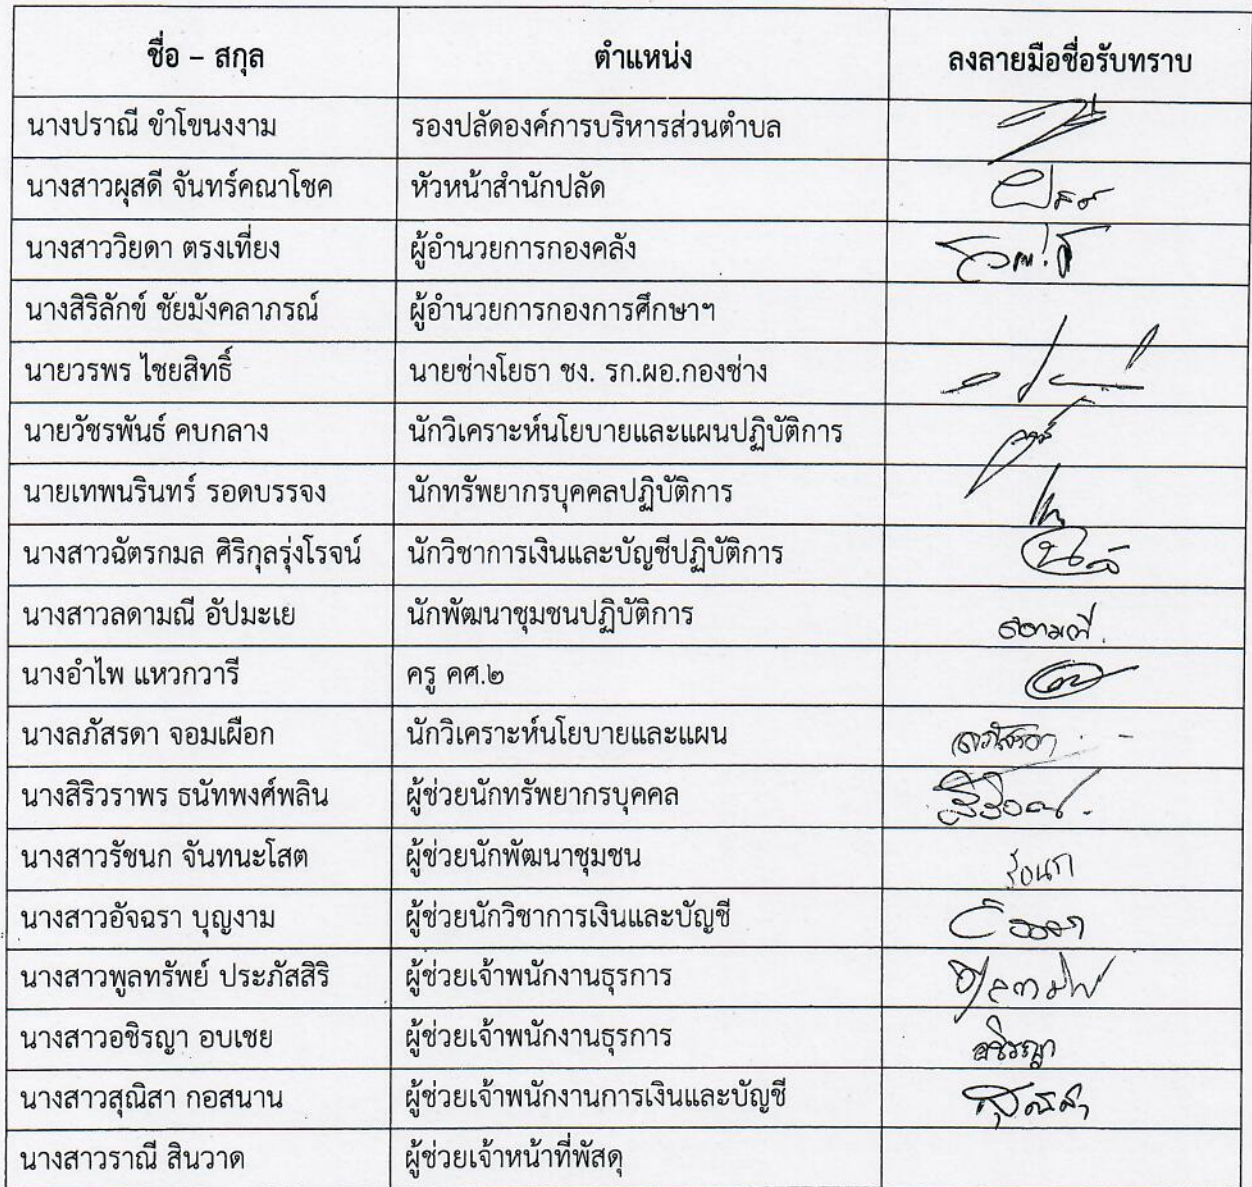 ชื่อ – สกุล ตำแหน่ง ลงลายมือชื่อรับทราบ
นางปราณี ขำโขนงงาม รองปลัดองค์การบริหารส่วนตำบล
นางสาวผุสดี จันทร์คณาโชค หัวหน้าสำนักปลัด
นางสาววิยดา ตรงเที่ยง ผู้อำนวยการกองคลัง
นางสิริลักข์ ชัยมังคลาภรณ์ ผู้อำนวยการกองการศึกษาฯ
นายวรพร ไชยสิทธิ์ นายช่างโยธา ชง. รก.ผอ.กองช่าง
นายวัชรพันธ์ คบกลาง นักวิเคราะห์นโยบายและแผนปฏิบัติการ
นายเทพนรินทร์ รอดบรรจง นักทรัพยากรบุคคลปฏิบัติการ
นางสาวฉัตรกมล ศิริกุลรุ่งโรจน์ นักวิชาการเงินและบัญชีปฏิบัติการ
นางสาวลดามณี อัปมะเย นักพัฒนาชุมชนปฏิบัติการ ลดามณี
นางอำไพ แหวกวารี ครู คศ.๒
นางลภัสรดา จอมเผือก นักวิเคราะห์นโยบายและแผน ลภัสรดา
นางสิริวราพร ธนัทพงศ์พลิน ผู้ช่วยนักทรัพยากรบุคคล
นางสาวรัชนก จันทนะโสต ผู้ช่วยนักพัฒนาชุมชน รัชนก
นางสาวอัจฉรา บุญงาม ผู้ช่วยนักวิชาการเงินและบัญชี
นางสาวพูลทรัพย์ ประภัสสิริ ผู้ช่วยเจ้าพนักงานธุรการ
นางสาวอชิรญา อบเชย ผู้ช่วยเจ้าพนักงานธุรการ อชิรญา
นางสาวสุณิสา กอสนาน ผู้ช่วยเจ้าพนักงานการเงินและบัญชี สุณิสา
นางสาวราณี สินวาด ผู้ช่วยเจ้าหน้าที่พัสดุ